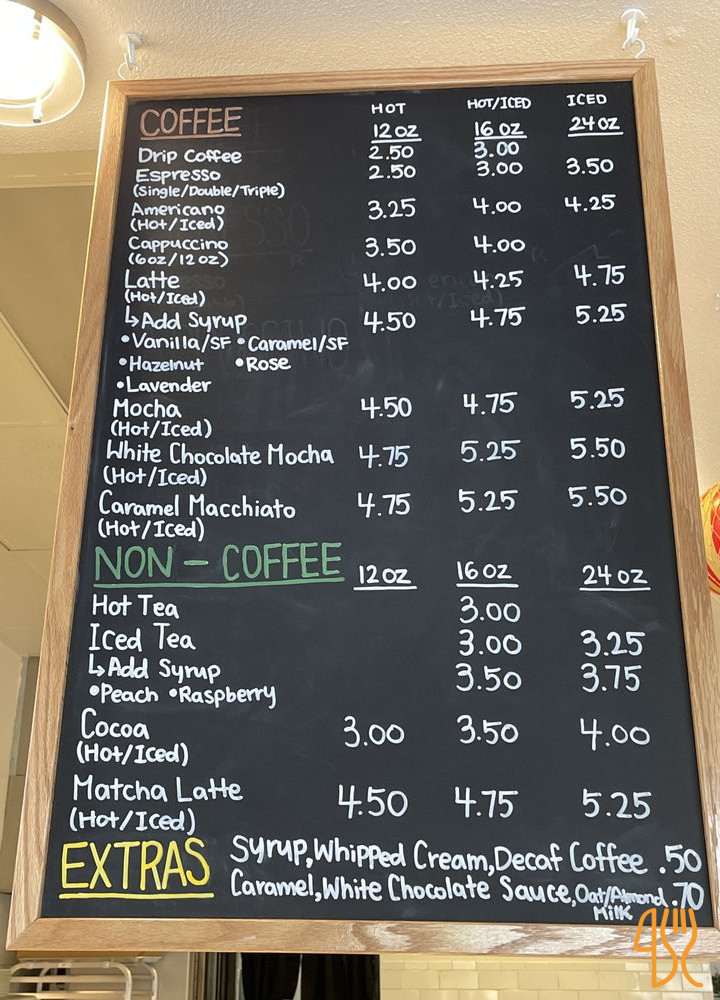 HOT HOT/ICED ICED
COFFEE 12 OZ 16 OZ 24 OZ
Drip Coffee 2.50 3.00
Espresso 2.50 3.00 3.50
(Single/Double/Triple)
Americano 3.25 4.00 4.25
(Hot/Iced)
Cappuccino 3.50 4.00
(6oz/12oz)
Latte 4.00 4.25 4.75
(Hot/Iced)
↳Add Syrup 4.50 4.75 5.25
•Vanilla/SF •Caramel/SF
•Hazelnut •Rose
•Lavender
Mocha 4.50 4.75 5.25
(Hot/Iced)
White Chocolate Mocha 4.75 5.25 5.50
(Hot/Iced)
Caramel Macchiato 4.75 5.25 5.50
(Hot/Iced)
NON-COFFEE 12 OZ 16 OZ 24 OZ
Hot Tea 3.00
Iced Tea 3.00 3.25
↳Add Syrup 3.50 3.75
•Peach •Raspberry
Cocoa 3.00 3.50 4.00
(Hot/Iced)
Matcha Latte 4.50 4.75 5.25
(Hot/Iced)
EXTRAS Syrup,Whipped Cream,Decaf Coffee .50
Caramel,White Chocolate Sauce,Oat/Almond .70
Milk